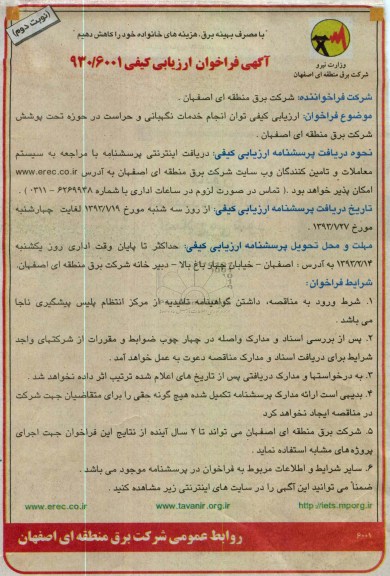 (نوبت دوم)
"با مصرف بهینه برق، هزینه های خانواده خود را کاهش دهیم"
وزارت نیرو
شرکت برق منطقه ای اصفهان
آگهی فراخوان ارزیابی کیفی ۹۳۰/۶۰۰۱
شرکت فراخواننده: شرکت برق منطقه ای اصفهان .
موضوع فراخوان: ارزیابی کیفی توان انجام خدمات نگهبانی و حراست در حوزه تحت پوشش
شرکت برق منطقه ای اصفهان .
نحوه دریافت پرسشنامه ارزیابی کیفی: دریافت اینترنتی پرسشنامه با مراجعه به سیستم
معاملات و تامین کنندگان وب سایت شرکت برق منطقه ای اصفهان به آدرس www.erec.co.ir
امکان پذیر خواهد بود . ( تماس در صورت لزوم در ساعات اداری با شماره ۶۲۶۹۹۳۸ - ۰۳۱۱ ) .
تاریخ دریافت پرسشنامه ارزیابی کیفی: از روز سه شنبه مورخ ۱۳۹۳/۷/۱۹ لغایت چهارشنبه
مورخ ۱۳۹۳/۷/۲۷ .
مهلت و محل تحویل پرسشنامه ارزیابی کیفی: حداکثر تا پایان وقت اداری روز یکشنبه
به آدرس : اصفهان - خیابان چهار باغ بالا - دبیر خانه شرکت برق منطقه ای اصفهان.
شرایط فراخوان :
۱. شرط ورود به مناقصه، داشتن گواهینامه تائیدیه از مرکز انتظام پلیس پیشگیری ناجا
می باشد .
۲. پس از بررسی اسناد و مدارک واصله در چهار چوب ضوابط و مقررات از شرکتهای واجد
شرایط برای دریافت اسناد و مدارک مناقصه دعوت به عمل خواهد آمد .
۳. به درخواستها و مدارک دریافتی پس از تاریخ های اعلام شده ترتیب اثر داده نخواهد شد .
۴. بدیهی است ارائه مدارک پرسشنامه تکمیل شده هیچ گونه حقی را برای متقاضیان جهت شرکت
در مناقصه ایجاد نخواهد کرد
۵. شرکت برق منطقه ای اصفهان می تواند تا ۲ سال آینده از نتایج این فراخوان جهت اجرای
پروژه های مشابه استفاده نماید .
۶. سایر شرایط و اطلاعات مربوط به فراخوان در پرسشنامه موجود می باشد .
ضمناً می توانید این آگهی را در سایت های اینترنتی زیر مشاهده کنید .
http://iets.mporg.ir www.tavanir.org.ir www.erec.co.ir
روابط عمومی شرکت برق منطقه ای اصفهان
۶۰۰۱